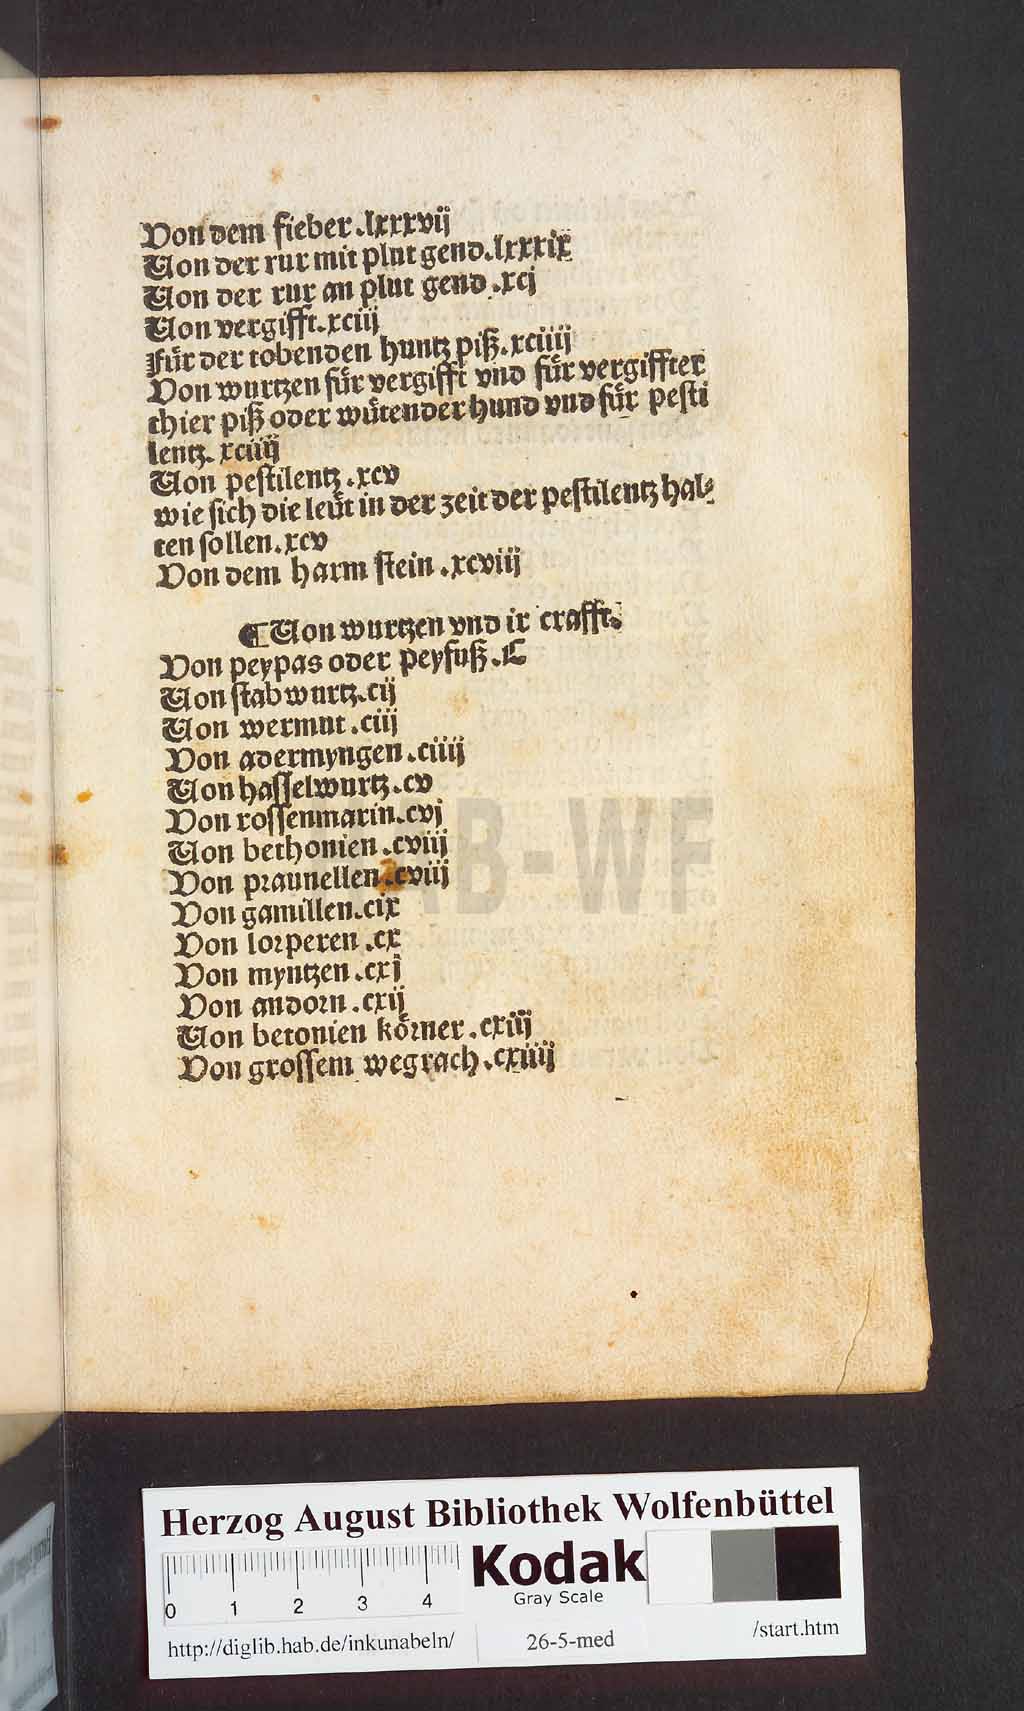 Von dem fieber .lxxxvij
Von der rur mit plut gend .lxxxix
Von der rur an plut gend .xcj
Von vergifft .xciij
Für der tobenden huntz piß .xciiij
Von wurtzen für vergifft vnd für vergiffter
thier piß oder wütender hund vnd für pesti
lentz. xciiij
Von pestilentz .xcv
wie sich die leüt in der zeit der pestilentz hal⸗
ten sollen .xcv
Von dem harm stein .xcviij
¶ Von wurtzen vnd ir crafft.
Von peypas oder peyfuß .C
Von stabwurtz .cij
Von wermut .ciij
Von adermyngen .ciiij
Von hasselwurtz .cv
Von rossenmarin .cvj
Von bethonien .cviij
Von praunellen .cviij
Von gamillen .cix
Von lorperen .cx
Von myntzen .cxj
Von andorn .cxij
Von betonien körner .cxiij
Von grossem wegrach .cxiiij
HAB-WF
Herzog August Bibliothek Wolfenbüttel
Kodak
Gray Scale
0 1 2 3 4
http://diglib.hab.de/inkunabeln/ 26-5-med /start.htm